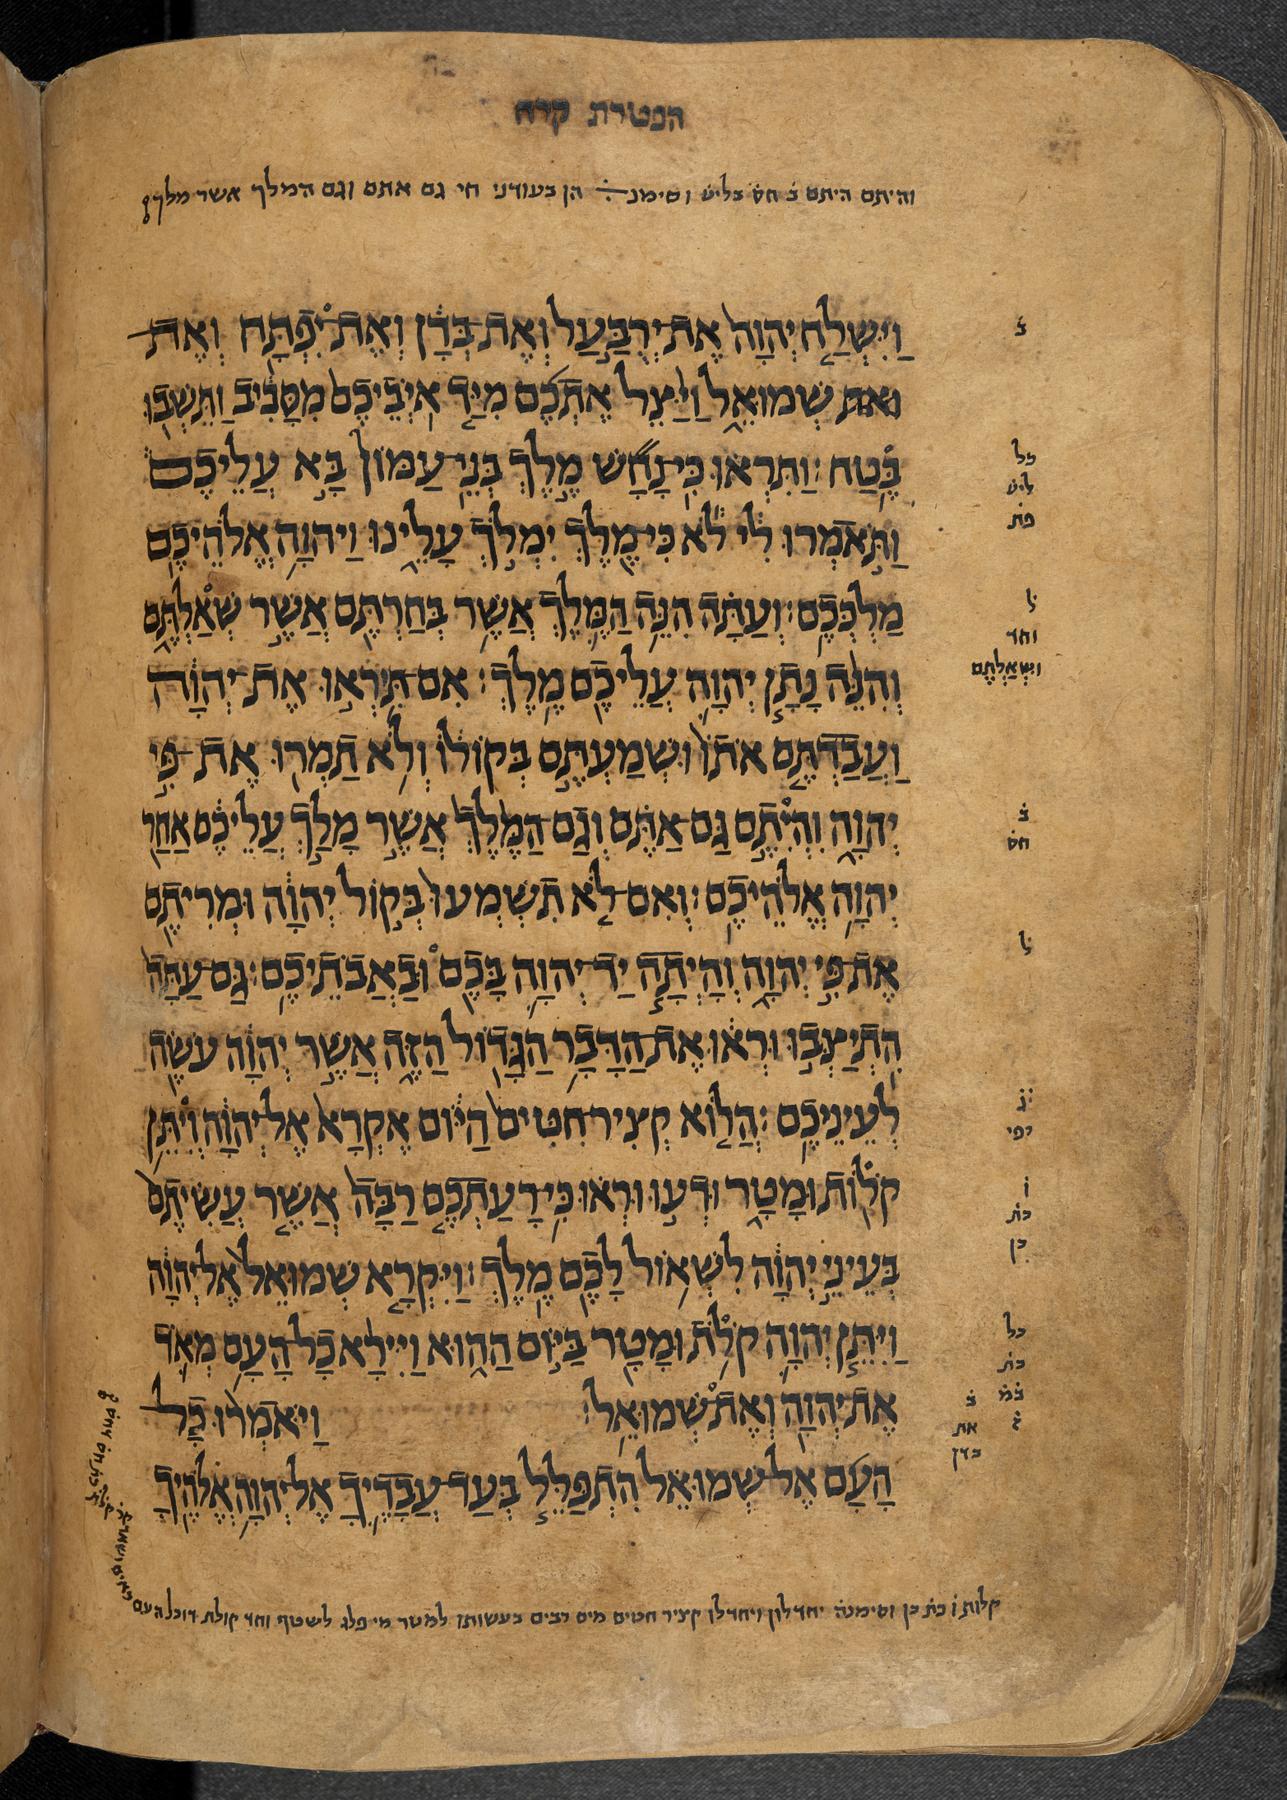 הפטרת קרח
והיתם היתם ב֗ חס֗ בליש֗ וסימנ֗ הן בעודני חי גם אתם וגם המלך אשר מלך
ב֗
וַיִּשְׁלַח יְהוָה אֶת־יְרֻבַּעַל וְאֶת־בְּדָן וְאֶת־יִפְתָּח וְאֶת
ואת שְׁמוּאֵל וַיַּצֵּל אֶתְכֶם מִיַּד אֹיְבֵיכֶם מִסָּבִיב וַתֵּשְׁבוּ
בֶּטַח׃ וַתִּרְאוּ כִּי־נָחָשׁ מֶלֶךְ בְּנֵי־עַמּוֹן בָּא עֲלֵיכֶם
כל
ליש֗
פת֗
וַתֹּאמְרוּ לִי לֹא כִּי־מֶלֶךְ יִמְלֹךְ עָלֵינוּ וַיהוָה אֱלֹהֵיכֶם
מַלְכְּכֶם׃ וְעַתָּה הִנֵּה הַמֶּלֶךְ אֲשֶׁר בְּחַרְתֶּם אֲשֶׁר שְׁאֶלְתֶּם
ל֗
וחד
ושְׁאֶלְתֶּם
וְהִנֵּה נָתַן יְהוָה עֲלֵיכֶם מֶלֶךְ׃ אִם־תִּירְאוּ אֶת־יְהוָה
וַעֲבַדְתֶּם אֹתוֹ וּשְׁמַעְתֶּם בְּקוֹלוֹ וְלֹא תַמְרוּ אֶת־פִּי
יְהוָה וִהְיִתֶם גַּם־אַתֶּם וְגַם־הַמֶּלֶךְ אֲשֶׁר מָלַךְ עֲלֵיכֶם אַחַר
ב֗
חס֗
יְהוָה אֱלֹהֵיכֶם׃ וְאִם־לֹא תִשְׁמְעוּ בְּקוֹל יְהוָה וּמְרִיתֶם
אֶת־פִּי יְהוָה וְהָיְתָה יַד־יְהוָה בָּכֶם וּבַאֲבֹתֵיכֶם׃ גַּם־עַתָּה
ל֗
הִתְיַצְּבוּ וּרְאוּ אֶת־הַדָּבָר הַגָּדוֹל הַזֶּה אֲשֶׁר יְהוָה עֹשֶׂה
לְעֵינֵיכֶם׃ הֲלוֹא קְצִיר־חִטִּים הַיּוֹם אֶקְרָא אֶל־יְהוָה וְיִתֵּן
רפי
קֹלוֹת וּמָטָר וּדְעוּ וּרְאוּ כִּי־רָעַתְכֶם רַבָּה אֲשֶׁר עֲשִׂיתֶם
ו֗
כת֗
כן
בְּעֵינֵי יְהוָה לִשְׁאוֹל לָכֶם מֶלֶךְ׃ וַיִּקְרָא שְׁמוּאֵל אֶל־יְהוָה
וַיִּתֵּן יְהוָה קֹלֹת וּמָטָר בַּיּוֹם הַהוּא וַיִּירָא כָל־הָעָם מְאֹד
כל
כת֗
אֶת־יְהוָה וְאֶת־שְׁמוּאֵל׃ וַיֹּאמְרוּ כָל־
ב֗
את
בדן
הָעָם אֶל־שְׁמוּאֵל הִתְפַּלֵּל בְּעַד־עֲבָדֶיךָ אֶל־יְהוָה אֱלֹהֶיךָ
קלות ו֗ כת֗ כן וסימנה֗ יחדלון ויחדלו קציר חטים מים רבים בעשותו למטר מי פלג לשטף וחד קולת דוכל העם